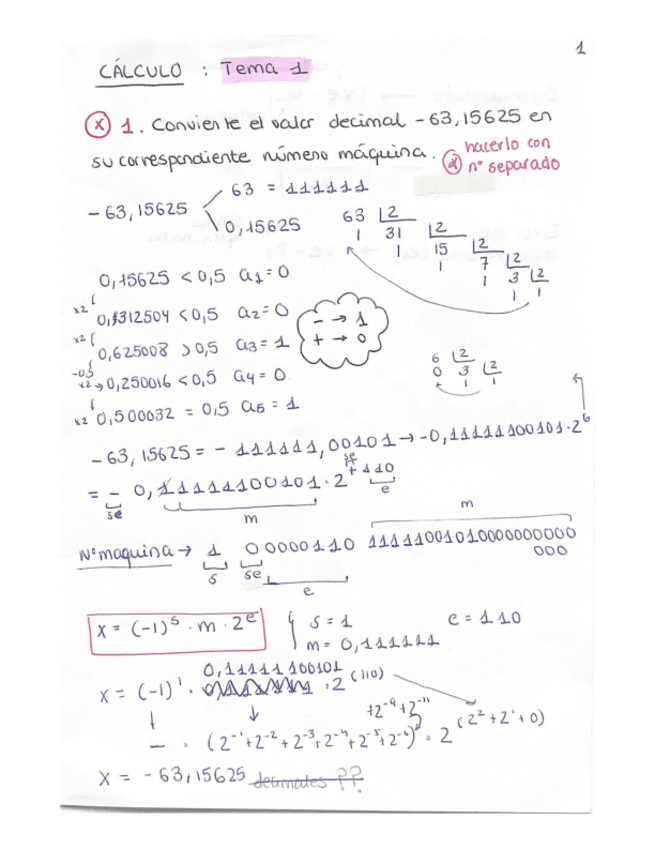 1
CÁLCULO : Tema 1
(x) 1. Convierte el valor decimal -63,15625 en
su correspondiente número máquina. (x) hacerlo con
nº separado
-63,15625
63 = 111111
0,15625
63 |2
1 31 |2
1 15 |2
1 7 |2
1 3 |2
1 1
0,15625 < 0,5 a1 = 0
x2 0,1312504 < 0,5 a2 = 0
x2 0,625008 > 0,5 a3 = 1
-0,5
x2 → 0,250016 < 0,5 a4 = 0
x2 0,500032 = 0,5 a5 = 1
- → 1
+ → 0
6 |2
0 3 |2
1 1
-63,15625 = - 111111,00101 → -0,11111100101·2^6
= - 0,11111100101·2^+110
se
se m e
m
Nº maquina → 1 00000110 111110010100000000000
000
s se e
x = (-1)^s · m · 2^e
s = 1 e = 110
m = 0,111111
0,11111100101
x = (-1)^1 · ·2^(110)
+2^-9+2^-11
- · (2^-1+2^-2+2^-3+2^-4+2^-5+2^-6) · 2^(2^2+2^1+0)
x = -63,15625 decimales ??